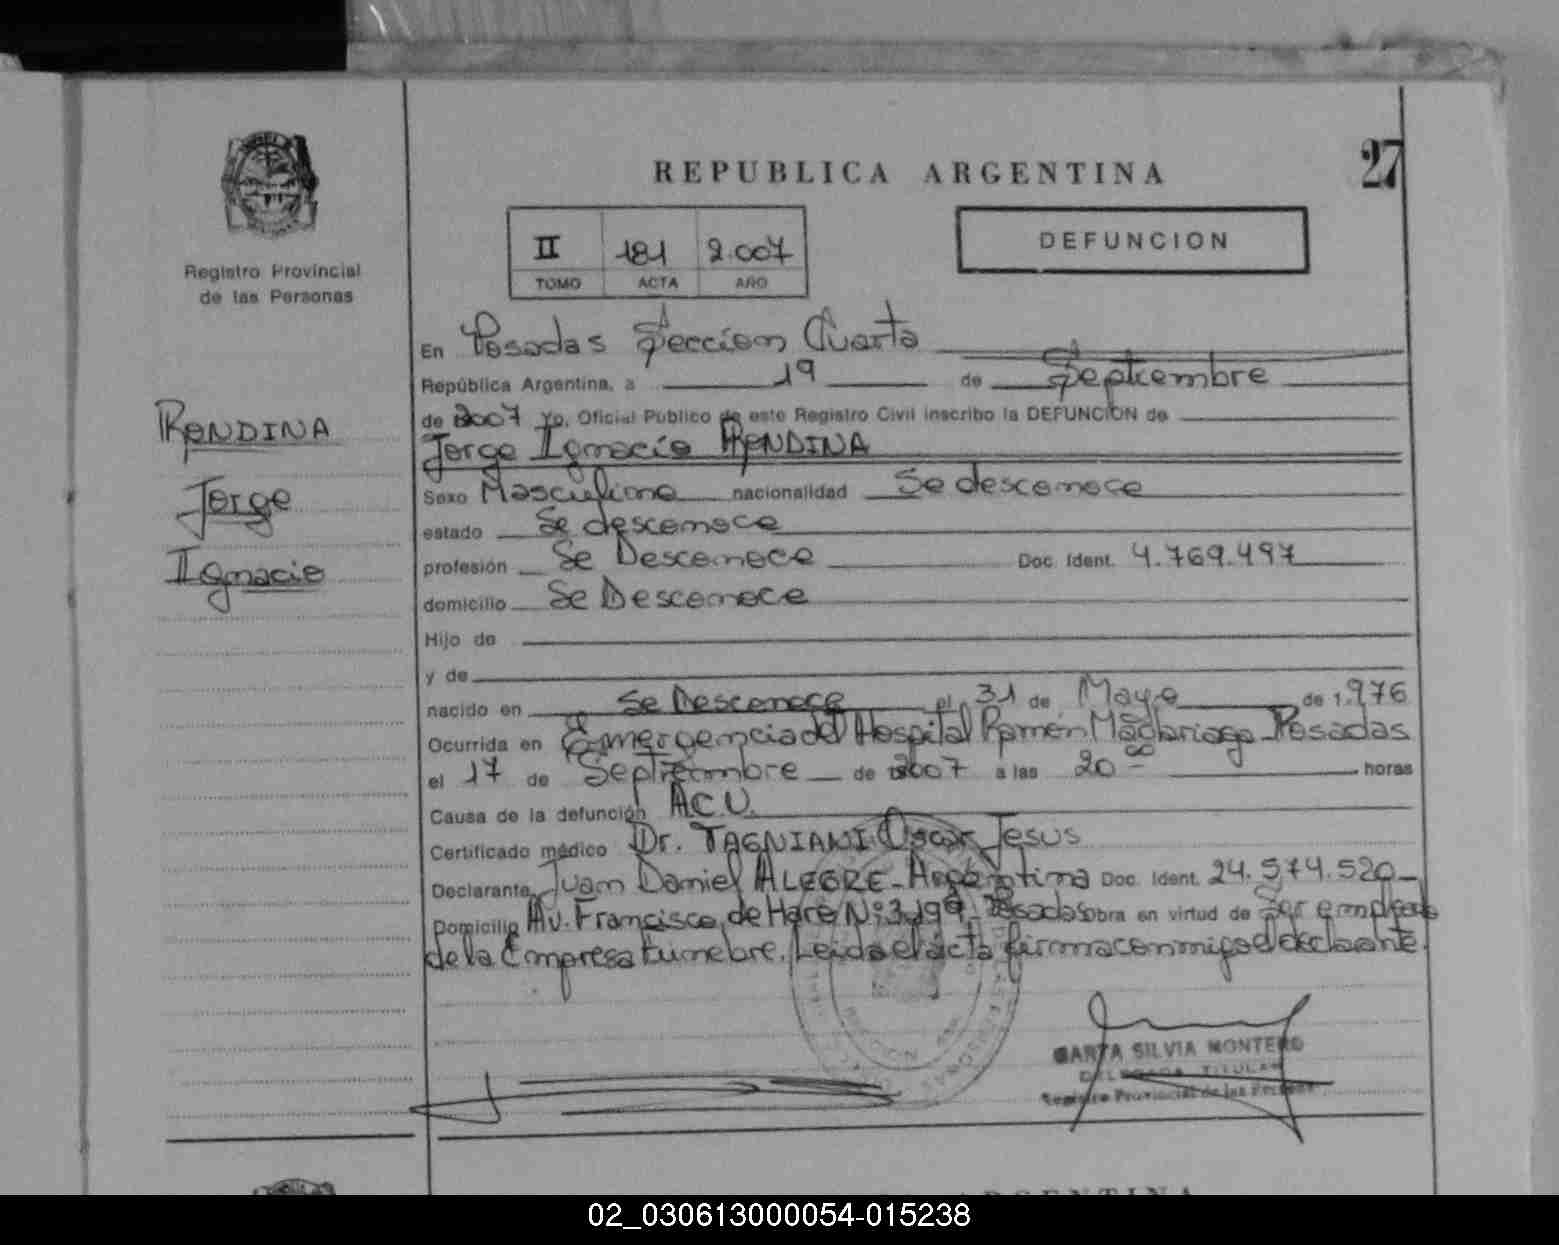 27
REPUBLICA ARGENTINA
Registro Provincial
de las Personas
II 181 2.007
TOMO ACTA AÑO
DEFUNCION
RONDINA
Jorge
Ignacio
En Posadas Seccion Cuarta
República Argentina, a 19 de Septiembre
de 2007 yo, Oficial Público de este Registro Civil inscribo la DEFUNCION de
Jorge Ignacio RONDINA
Sexo Masculino nacionalidad Se desconoce
estado Se desconoce
profesión Se Desconoce Doc. Ident. 4.769.497
domicilio Se Desconoce
Hijo de
y de
nacido en Se Desconoce el 31 de Mayo de 1.976
Ocurrida en Emergencia del Hospital Ramón Madariaga - Posadas
el 17 de Septiembre de 2007 a las 20 00 horas
Causa de la defunción A.C.V.
Certificado médico Dr. TAGNIANI Oscar Jesus
Declarante Juan Daniel ALEGRE - Argentina Doc. Ident. 24.574.520
Domicilio Av. Francisco de Haro Nº 3.199 - Posadas obra en virtud de Ser empleado
de la Empresa Funebre. Leida el acta firma conmigo el declarante.
SILVIA MONTERO
DELEGADA TITULAR
Registro Provincial de las Personas
ARGENTINA
02_030613000054-015238